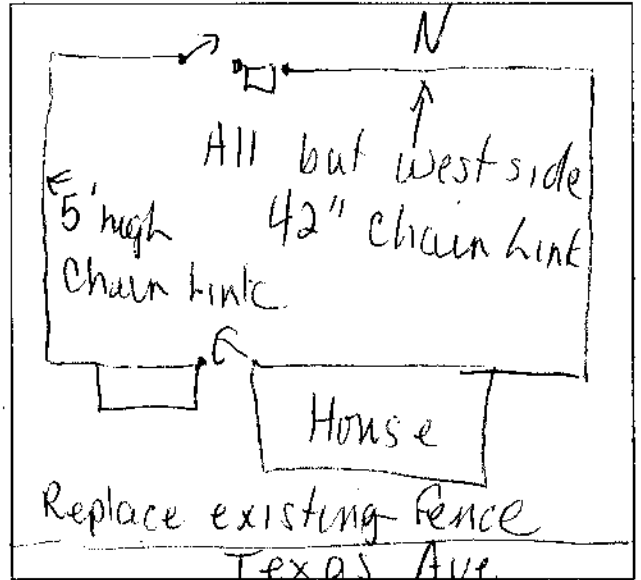 N
All but west side
42" Chain Link
5' high
Chain Link
House
Replace existing Fence
Texas Ave